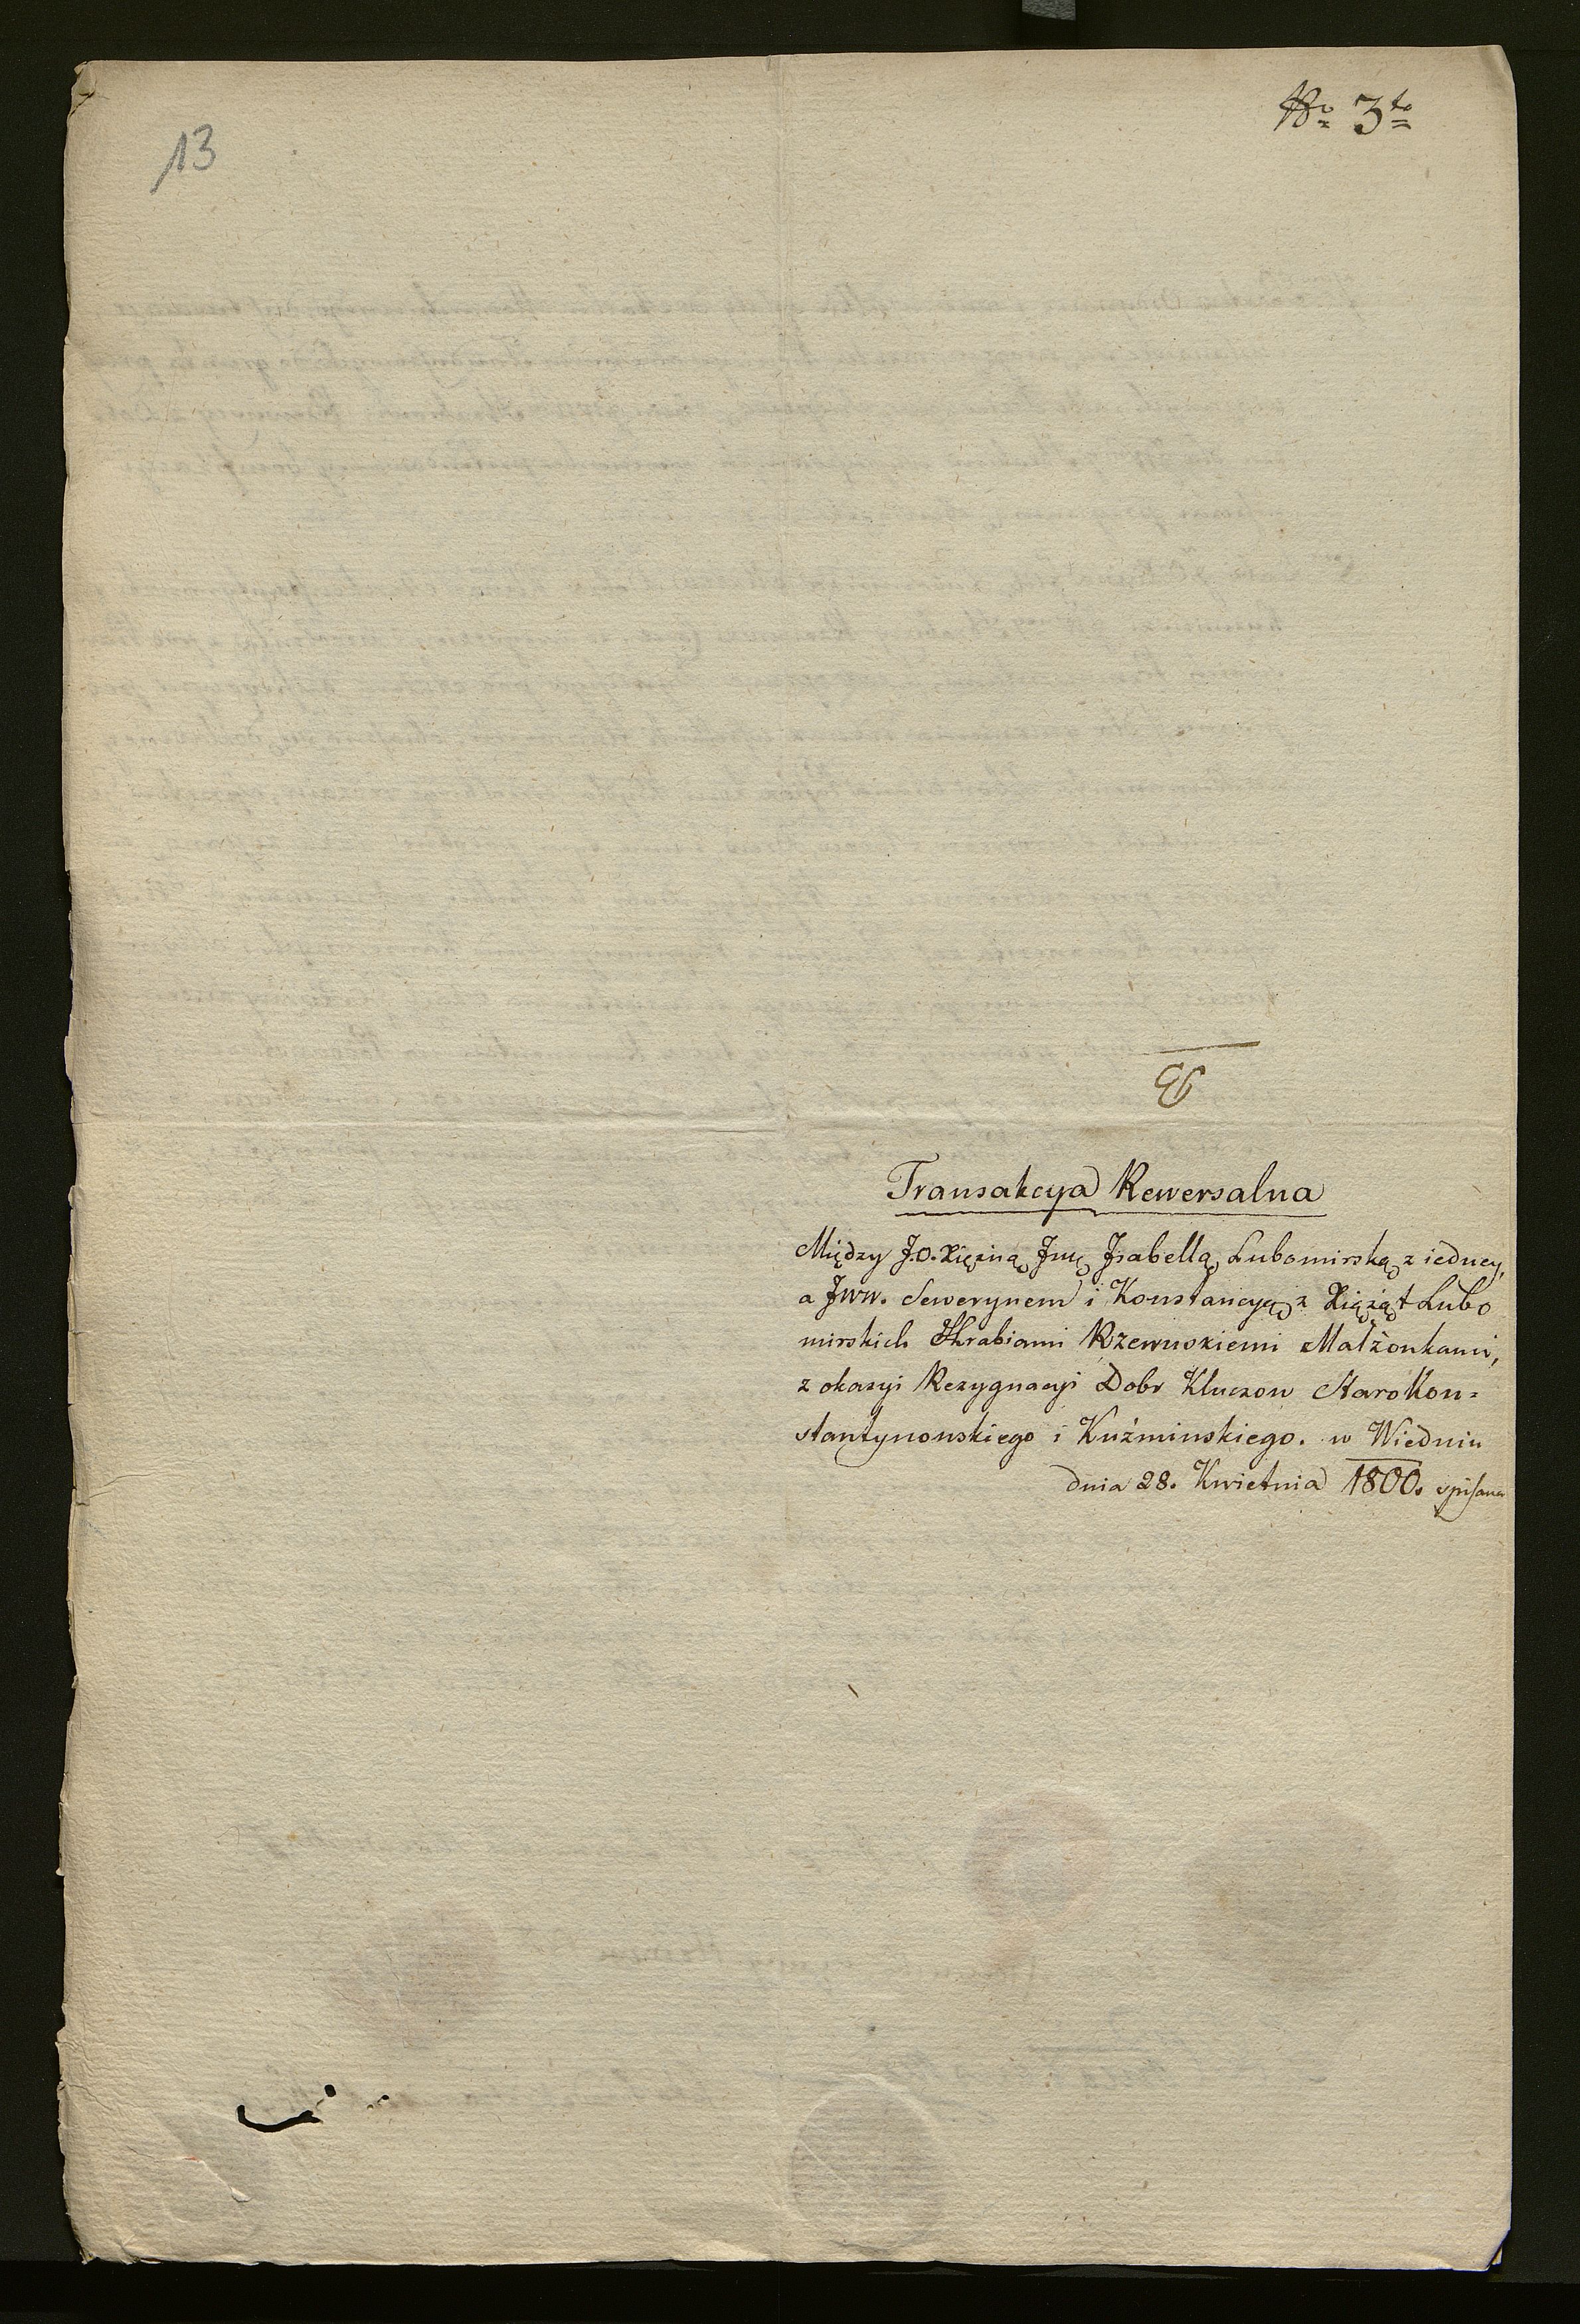 13
No 3to
Transakcya Rewersalna
Między J.O. Xiężną Jmę Jsabellą Lubomirską z iedney,
a Jww. Sewerynem i Konstancyą z Xiążąt Lubo
mirskich Hrabiami Rzewuskiemi Małżonkami,
z okazyi Rezygnacyi Dobr Kluczow StaroKon=
stantynowskiego i Kuźminskiego. w Wiedniu
dnia 28. Kwietnia 1800. spisana